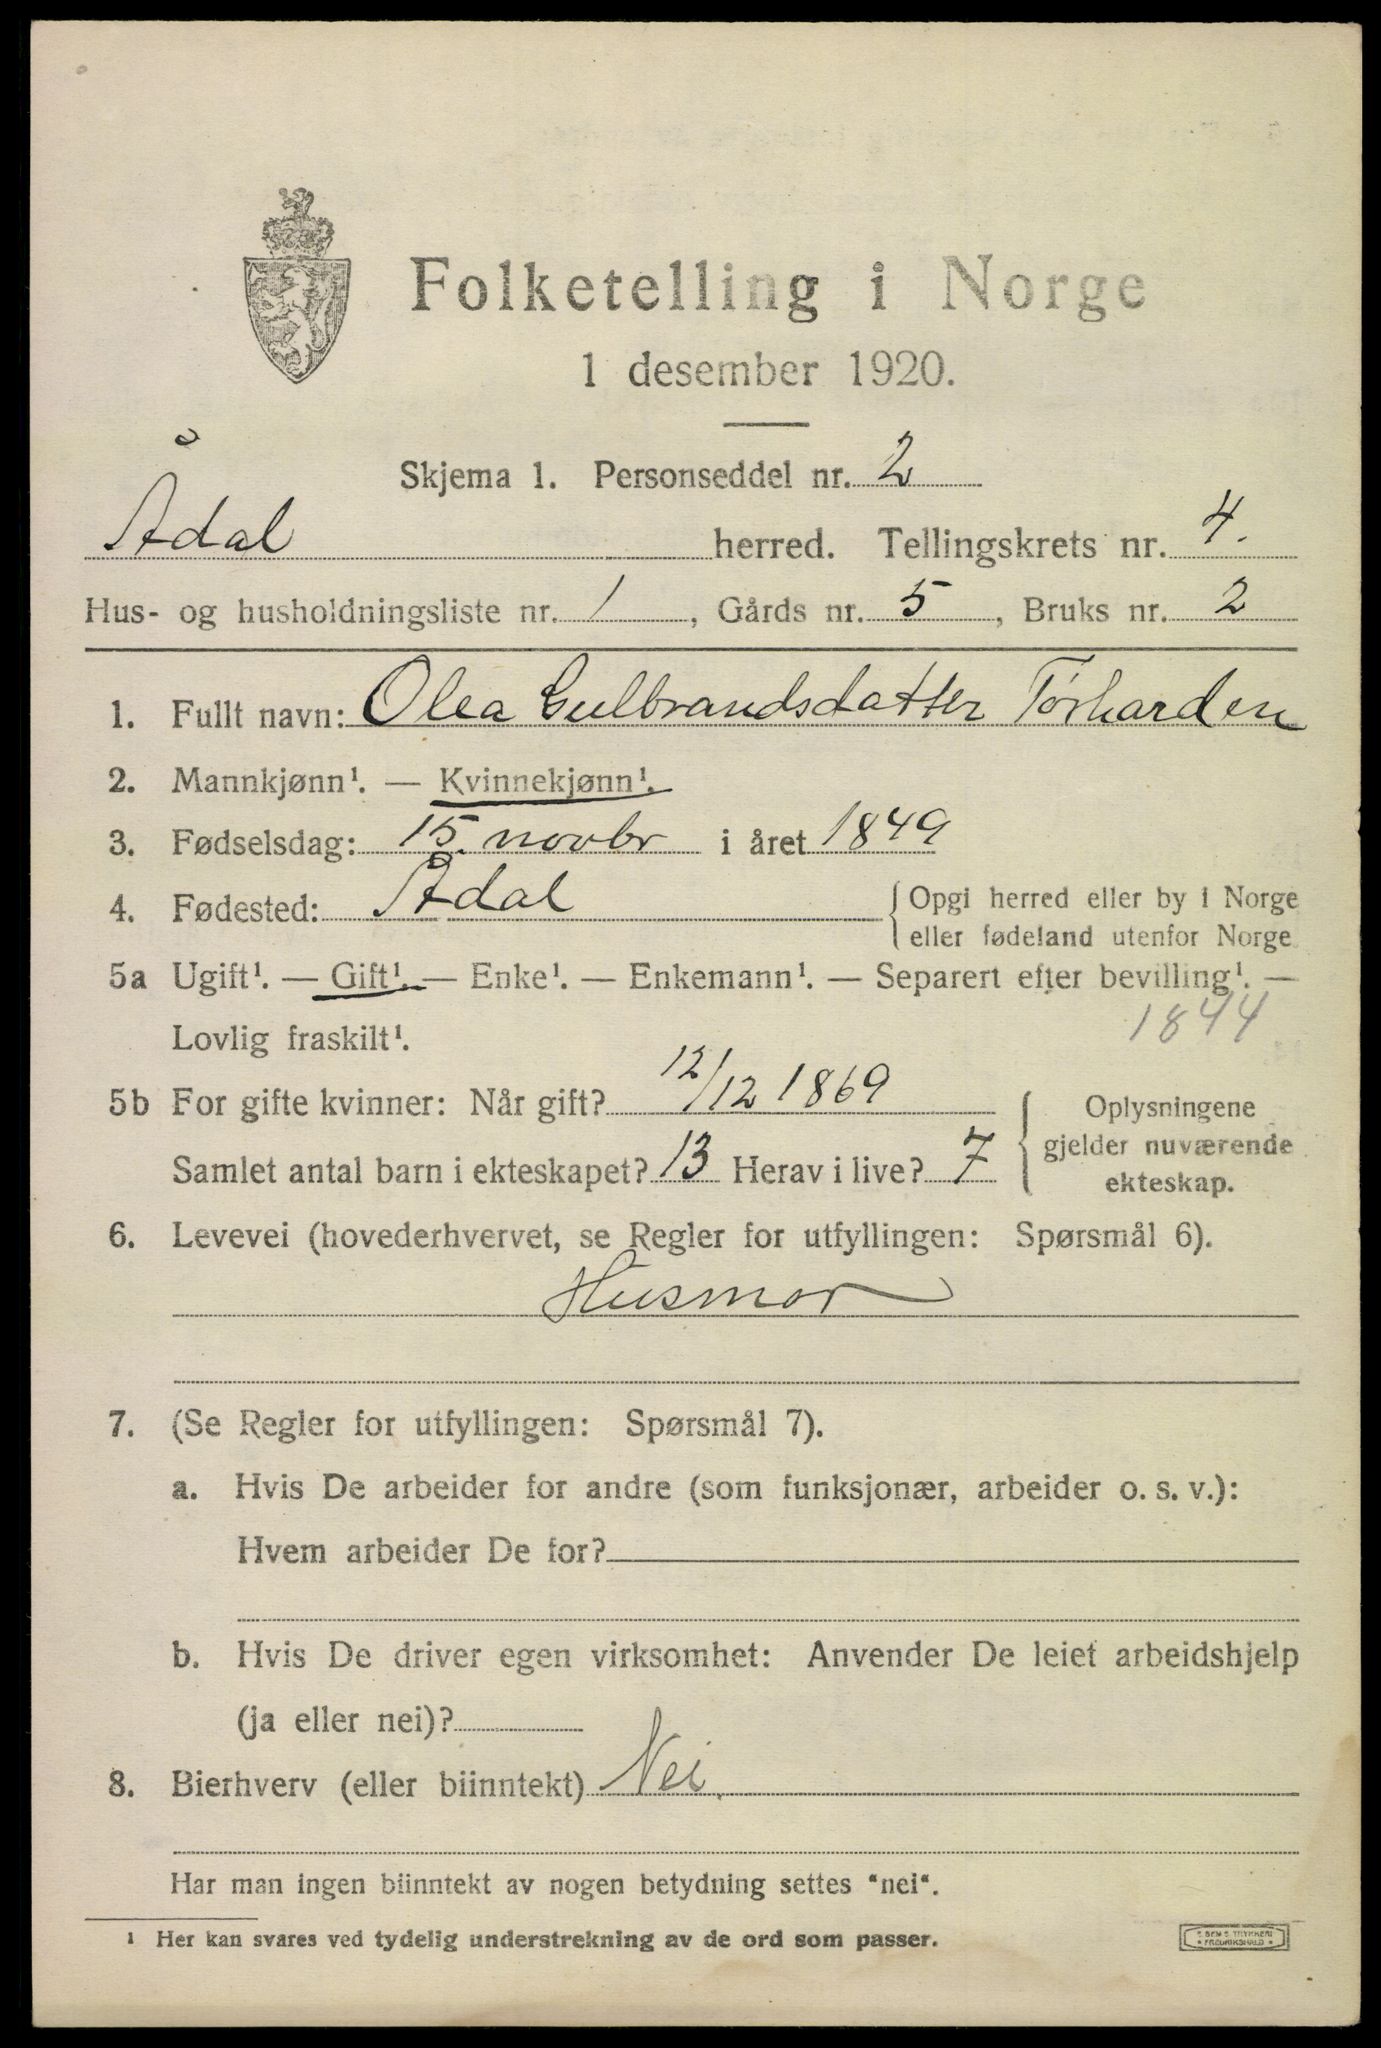 Folketelling i Norge
1 desember 1920.
Skjema 1. Personseddel nr. 2
Ådal herred. Tellingskrets nr. 4.
Hus- og husholdningsliste nr. 1, Gårds nr. 5, Bruks nr. 2
1. Fullt navn: Olea Gulbrandsdatter Törharden
2. Mannkjønn¹. — Kvinnekjønn¹.
3. Fødselsdag: 15. novbr i året 1849
4. Fødested: Ådal { Opgi herred eller by i Norge
eller fødeland utenfor Norge
5a Ugift¹. — Gift¹. — Enke¹. — Enkemann¹. — Separert efter bevilling¹. —
Lovlig fraskilt¹. 1844
5b For gifte kvinner: Når gift? 12/12 1869
Samlet antal barn i ekteskapet? 13 Herav i live? 7
{ Oplysningene
gjelder nuværende
ekteskap.
6. Levevei (hovederhvervet, se Regler for utfyllingen: Spørsmål 6).
Husmor
7. (Se Regler for utfyllingen: Spørsmål 7).
a. Hvis De arbeider for andre (som funksjonær, arbeider o. s. v.):
Hvem arbeider De for?
b. Hvis De driver egen virksomhet: Anvender De leiet arbeidshjelp
(ja eller nei)?
8. Bierhverv (eller biinntekt) Nei.
Har man ingen biinntekt av nogen betydning settes "nei".
¹ Her kan svares ved tydelig understrekning av de ord som passer.